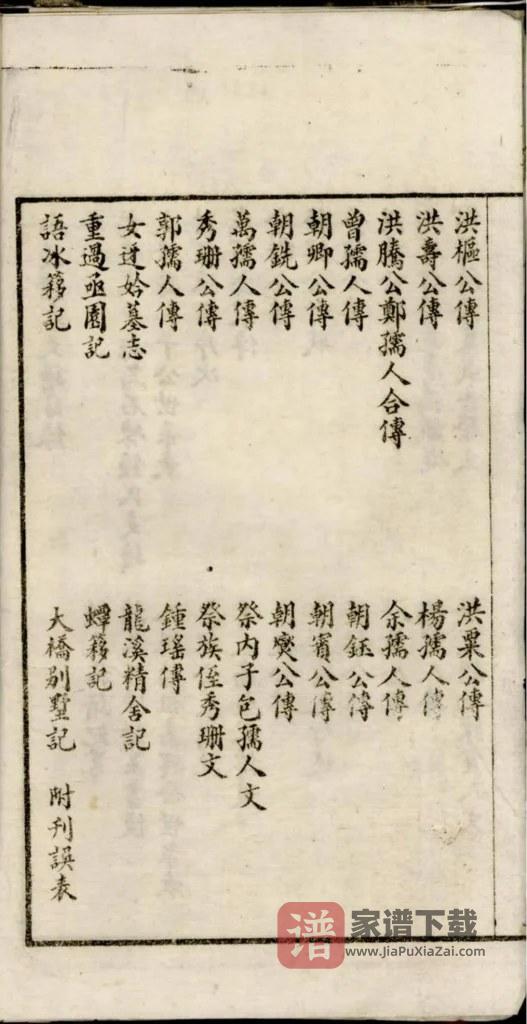 洪樞公傳
洪栗公傳
洪壽公傳
楊孺人傳
洪騰公鄭孺人合傳
余孺人傳
曾孺人傳
朝鈺公傳
朝卿公傳
朝賓公傳
朝銑公傳
朝燮公傳
萬孺人傳
祭內子包孺人文
秀珊公傳
祭族侄秀珊文
郭孺人傳
鍾瑤傳
女迓姈墓志
龍溪精舍記
重過亟園記
蟫簃記
語冰簃記
大橋別墅記 附刊誤表
谱 家谱下载
www.JiaPuXiaZai.com